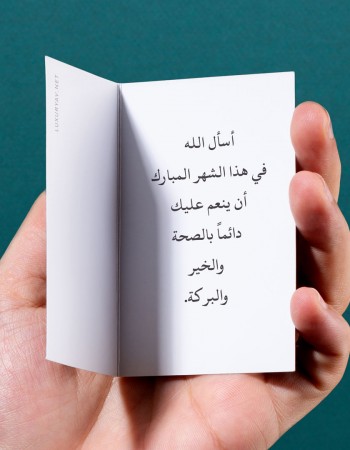 LUXURYBY.NET
أسأل الله
في هذا الشهر المبارك
أن ينعم عليك
دائماً بالصحة
والخير
والبركة.